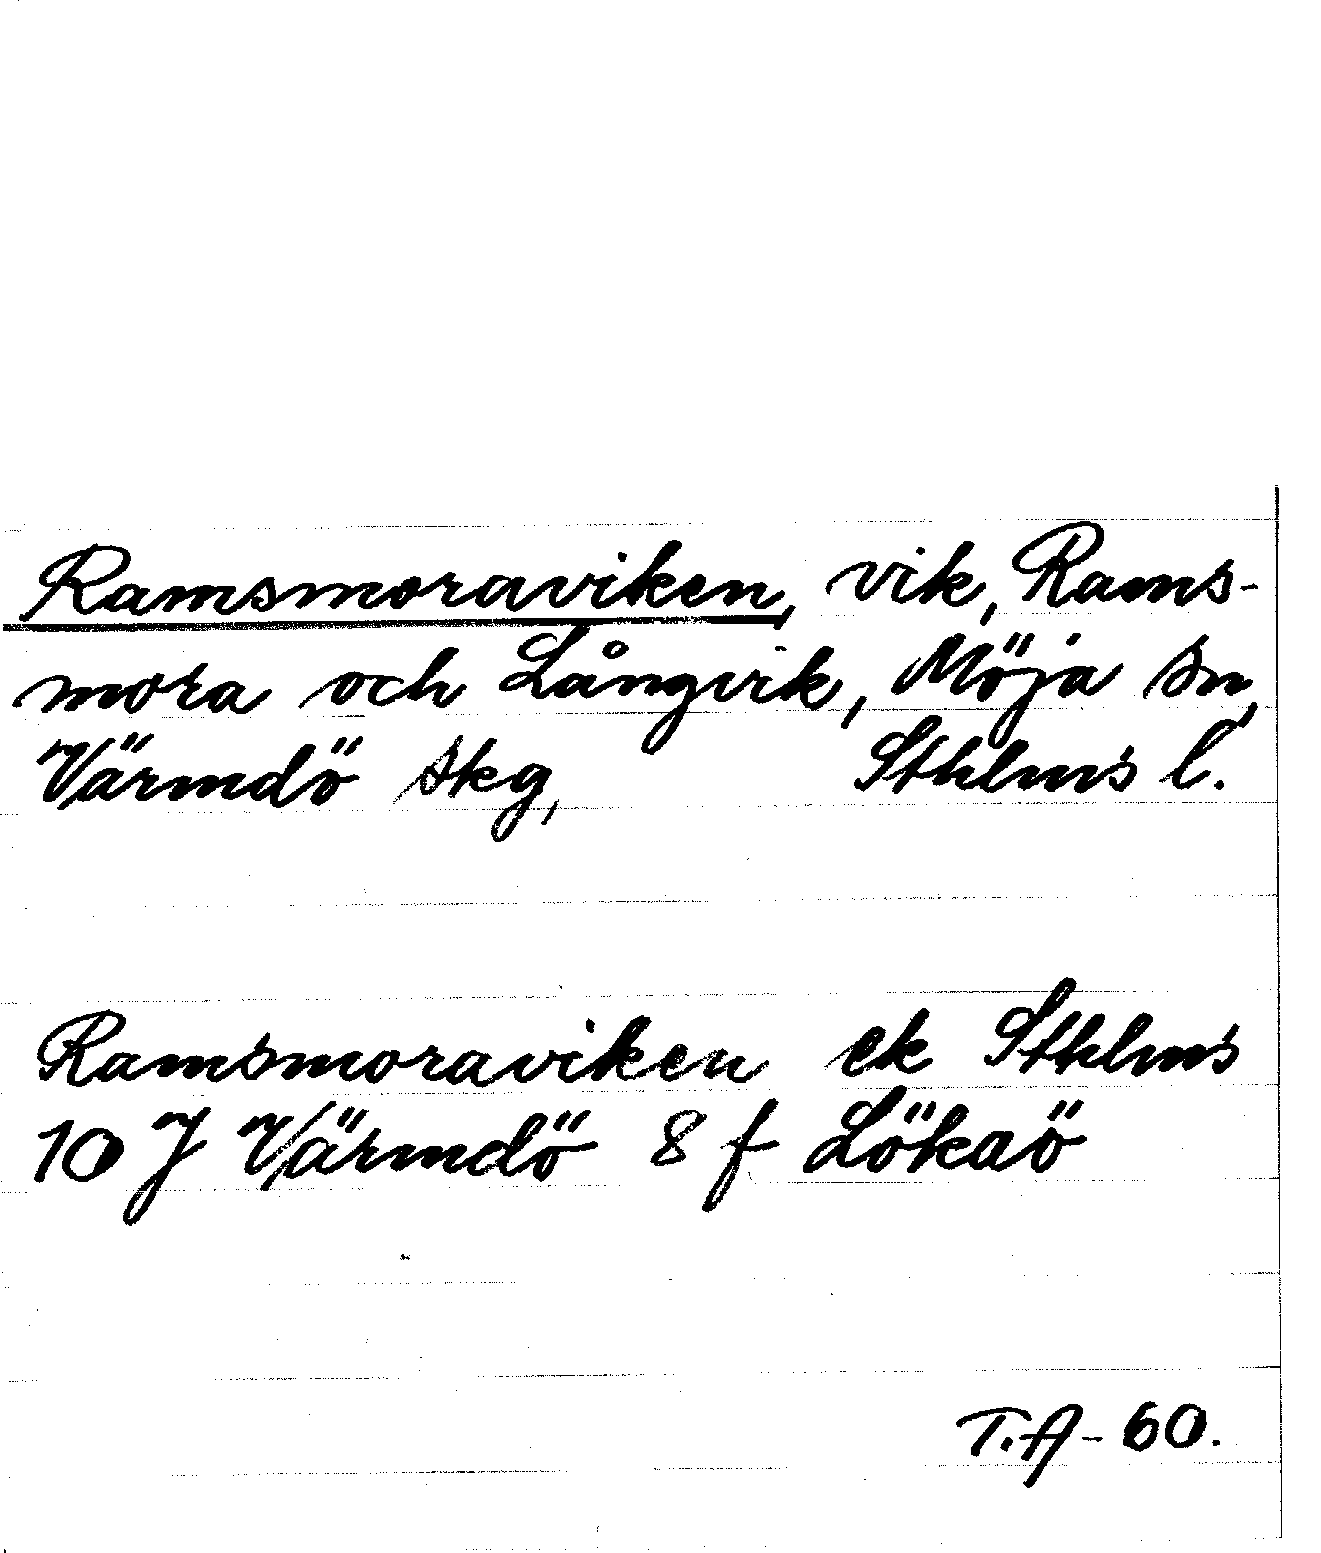 Ramsmoraviken, vik, Rams-
mora och Långvik, Möja sn,
Värmdö skg, Sthlms l.
Ramsmoraviken ek Sthlms
10 J Värmdö 8 f Lökaö
T.A-60.